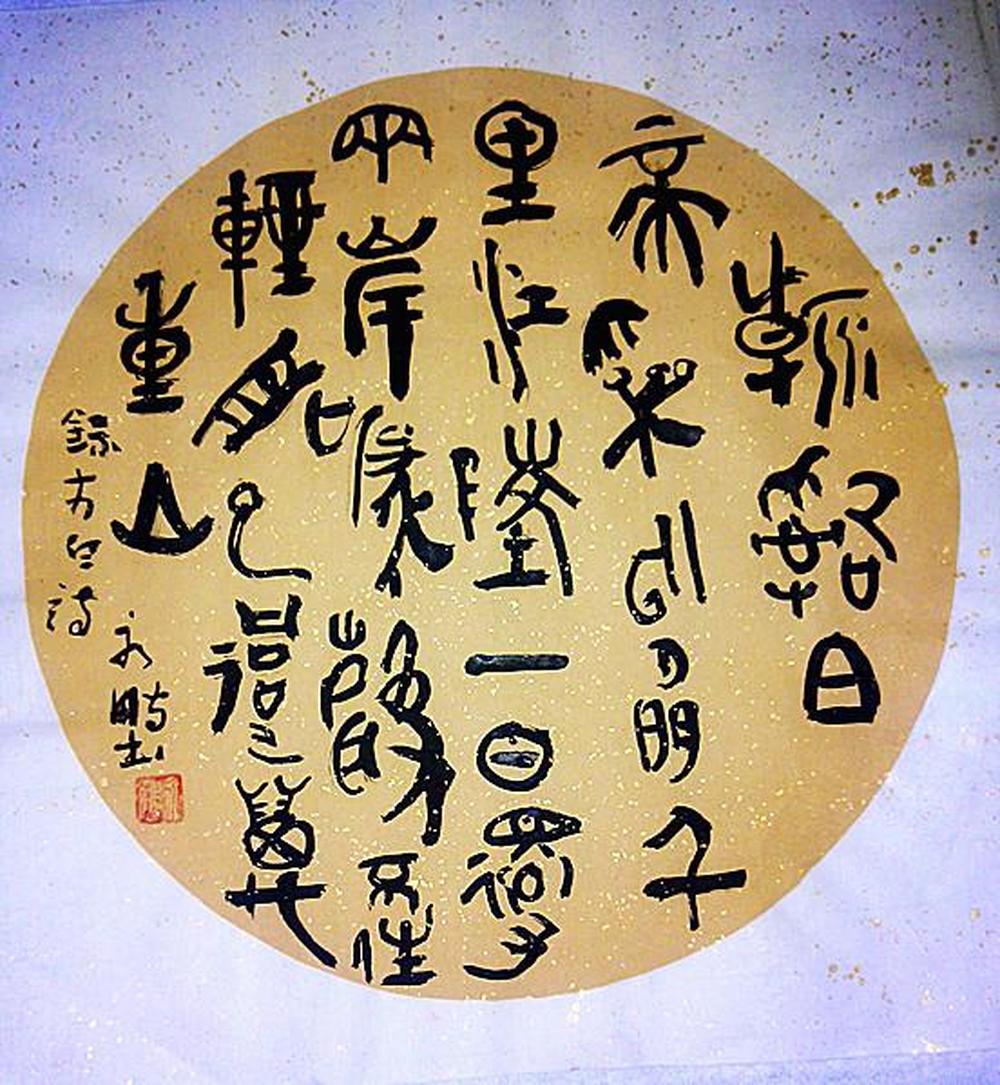 朝辭白
帝彩雲間千
里江陵一日還
兩岸猿聲不住
輕舟已過萬
重山
錄太白詩
永鵬書